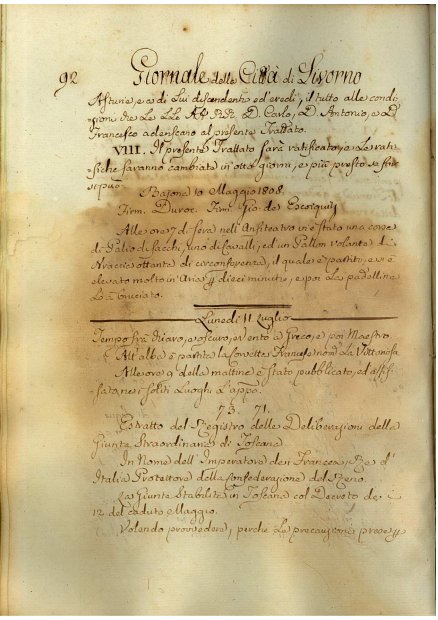 92 Giornale della Città di Livorno
Asturie, e a di Lui discendenti ed'eredi, il tutto alle condi-
zioni che Le LL. AA. RR. D. Carlo, D. Antonio, e D.
Francesco aderiscano al presente Trattato.
VIII. Il presente Trattato sarà ratificato, e Le rati-
fiche saranno cambiate in otto giorni, e più presto se sarà
Bajona 10 Maggio 1808.
Firm. Duroc. Firm. Gio. de Escoiquiz
Alle ore 7 di sera nell'Anfiteatro vi è stato una corsa
di Palio di Sacchi, uno di cavalli, ed un Pallon volante di
Braccia ottanta di circonferenza, il quale è partito, e si è
elevato molto in Aria dieci minuti, e poi La padellina
Lo à bruciato.
Lunedì 11 Luglio
Tempo frà chiaro, e oscuro, e vento a Greco, e poi Maestro.
All'alba è partita la Corvetta Francese nom. La Vittoriosa
Alle ore 9 della mattina è stato pubblicato, ed affis-
sata nei soliti Luoghi L'app.
73. 71.
Estratto del Registro delle Deliberazioni della
Giunta Straordinaria di Toscana
In Nome dell'Imperatore dei Francesi, Re d'
Italia Protettore della Confederazione del Reno.
La Giunta Stabilita in Toscana col Decreto de'
12 del caduto Maggio.
Volendo provvedere, perche Le precauzioni prese